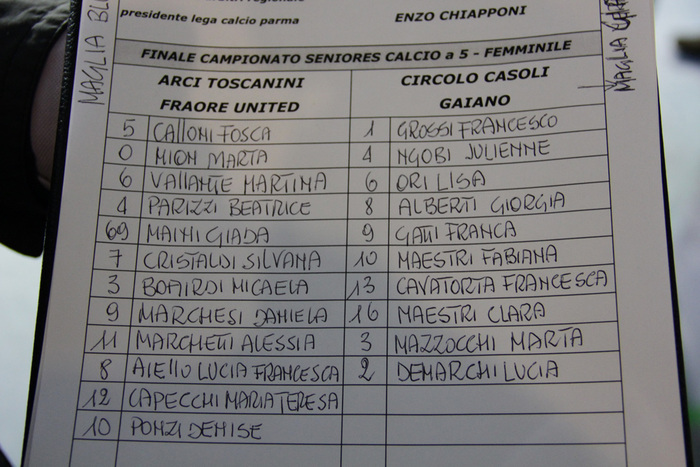 presidente lega calcio parma ENZO CHIAPPONI
FINALE CAMPIONATO SENIORES CALCIO a 5 - FEMMINILE
ARCI TOSCANINI CIRCOLO CASOLI
FRAORE UNITED GAIANO
5 CALLONI FOSCA 1 GROSSI FRANCESCO
0 MION MARTA 4 NGOBI JULIENNE
6 VALLANTE MARTINA 6 ORI LISA
4 PARIZZI BEATRICE 8 ALBERTI GIORGIA
69 MAINI GIADA 9 GATTI FRANCA
7 CRISTALDI SILVANA 10 MAESTRI FABIANA
3 BOAIRDI MICAELA 13 CAVATORTA FRANCESCA
9 MARCHESI DANIELA 16 MAESTRI CLARA
11 MARCHETTI ALESSIA 3 MAZZOCCHI MARTA
8 AIELLO LUCIA FRANCESCA 2 DEMARCHI LUCIA
12 CAPECCHI MARIA TERESA
10 PONZI DENISE
MAGLIA BLU
MAGLIA